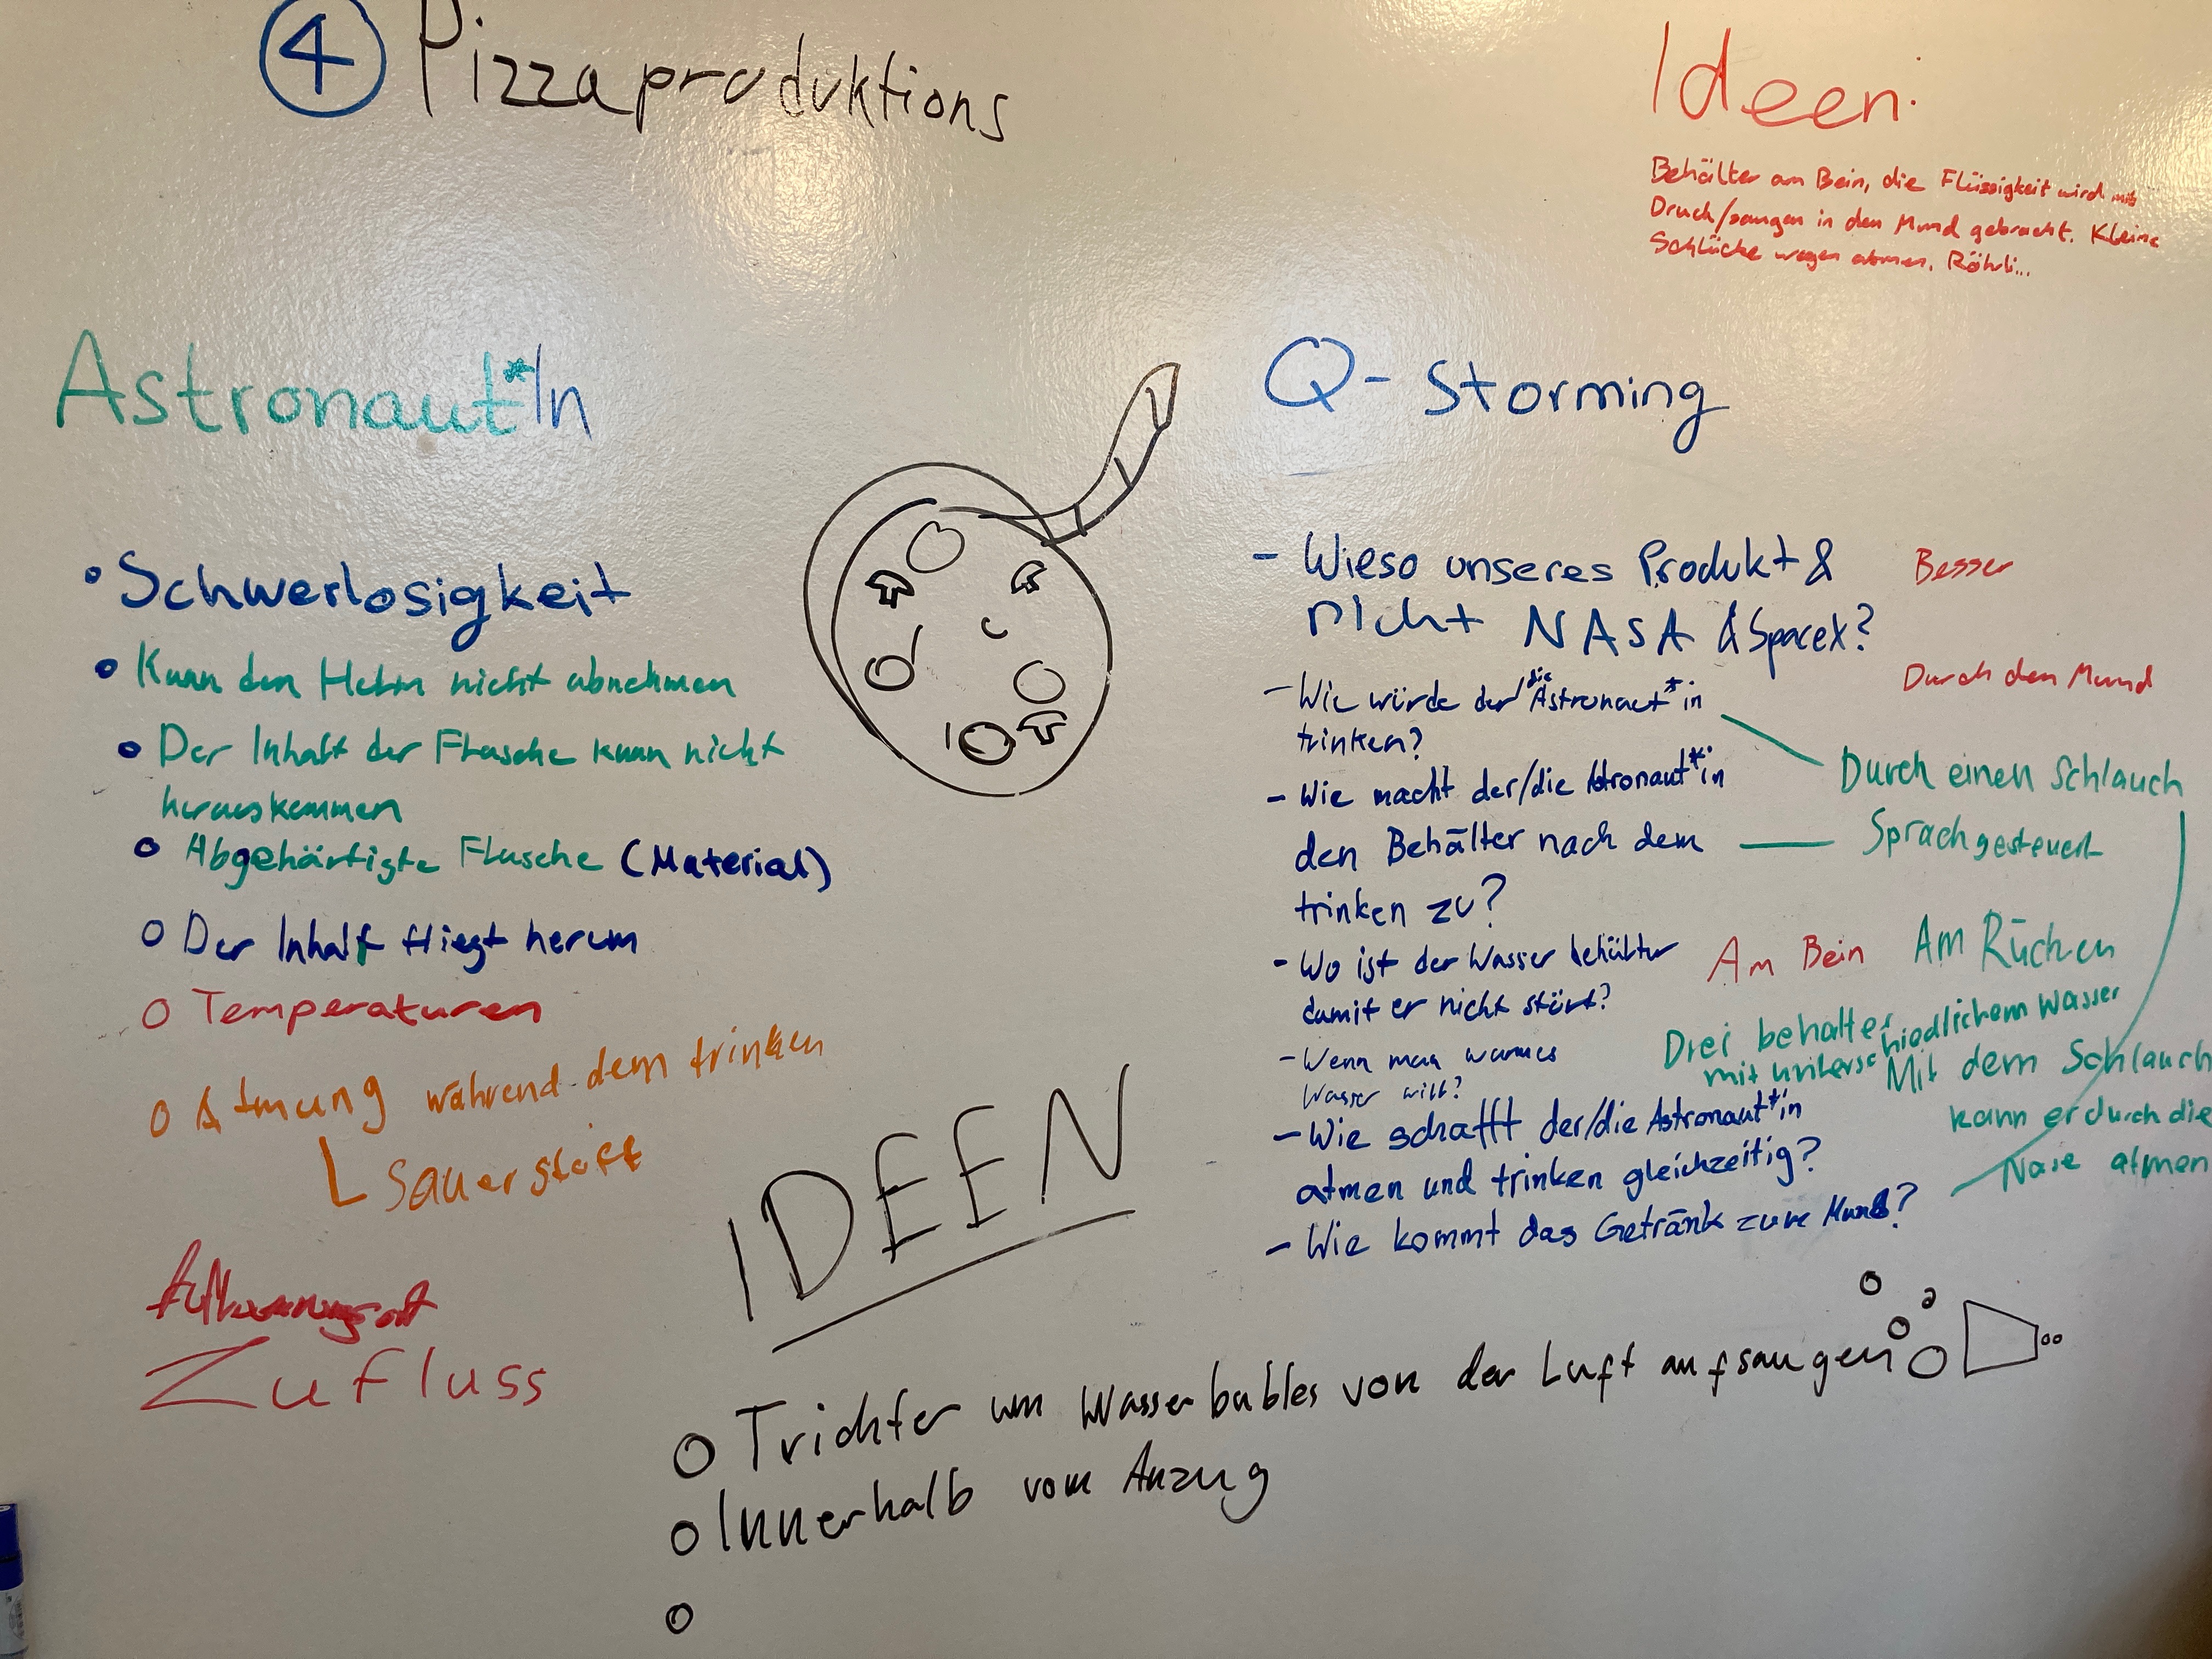 4 Pizzaproduktions
Ideen:
Behälter am Bein, die Flüssigkeit wird mit
Druck/saugen in den Mund gebracht. Kleine
Schlücke wegen atmen. Röhrli...
Astronaut*In
• Schwerlosigkeit
• Kann den Helm nicht abnehmen
• Der Inhalt der Flasche kann nicht
herauskommen
• Abgehärtigte Flasche (Material)
○ Der Inhalt fliegt herum
○ Temperaturen
○ Atmung während dem trinken
Sauerstoff
Zufluss
Q-Storming
- Wieso unseres Produkt &
nicht NASA & SpaceX?
Besser
- Wie würde der/die Astronaut*in
trinken?
Durch den Mund
Durch einen Schlauch
- Wie macht der/die Astronaut*in
den Behälter nach dem
trinken zu?
Sprachgesteuert
- Wo ist der Wasser behälter
damit er nicht stört?
Am Bein Am Rücken
- Wenn man warmes
Wasser will?
Drei behälter
mit unterschiedlichem Wasser
- Wie schafft der/die Astronaut*in
atmen und trinken gleichzeitig?
Mit dem Schlauch
kann er durch die
Nase atmen
- Wie kommt das Getränk zum Mund?
IDEEN
○ Trichter um Wasserbubles von der Luft aufsaugen
○ Innerhalb vom Anzug
○